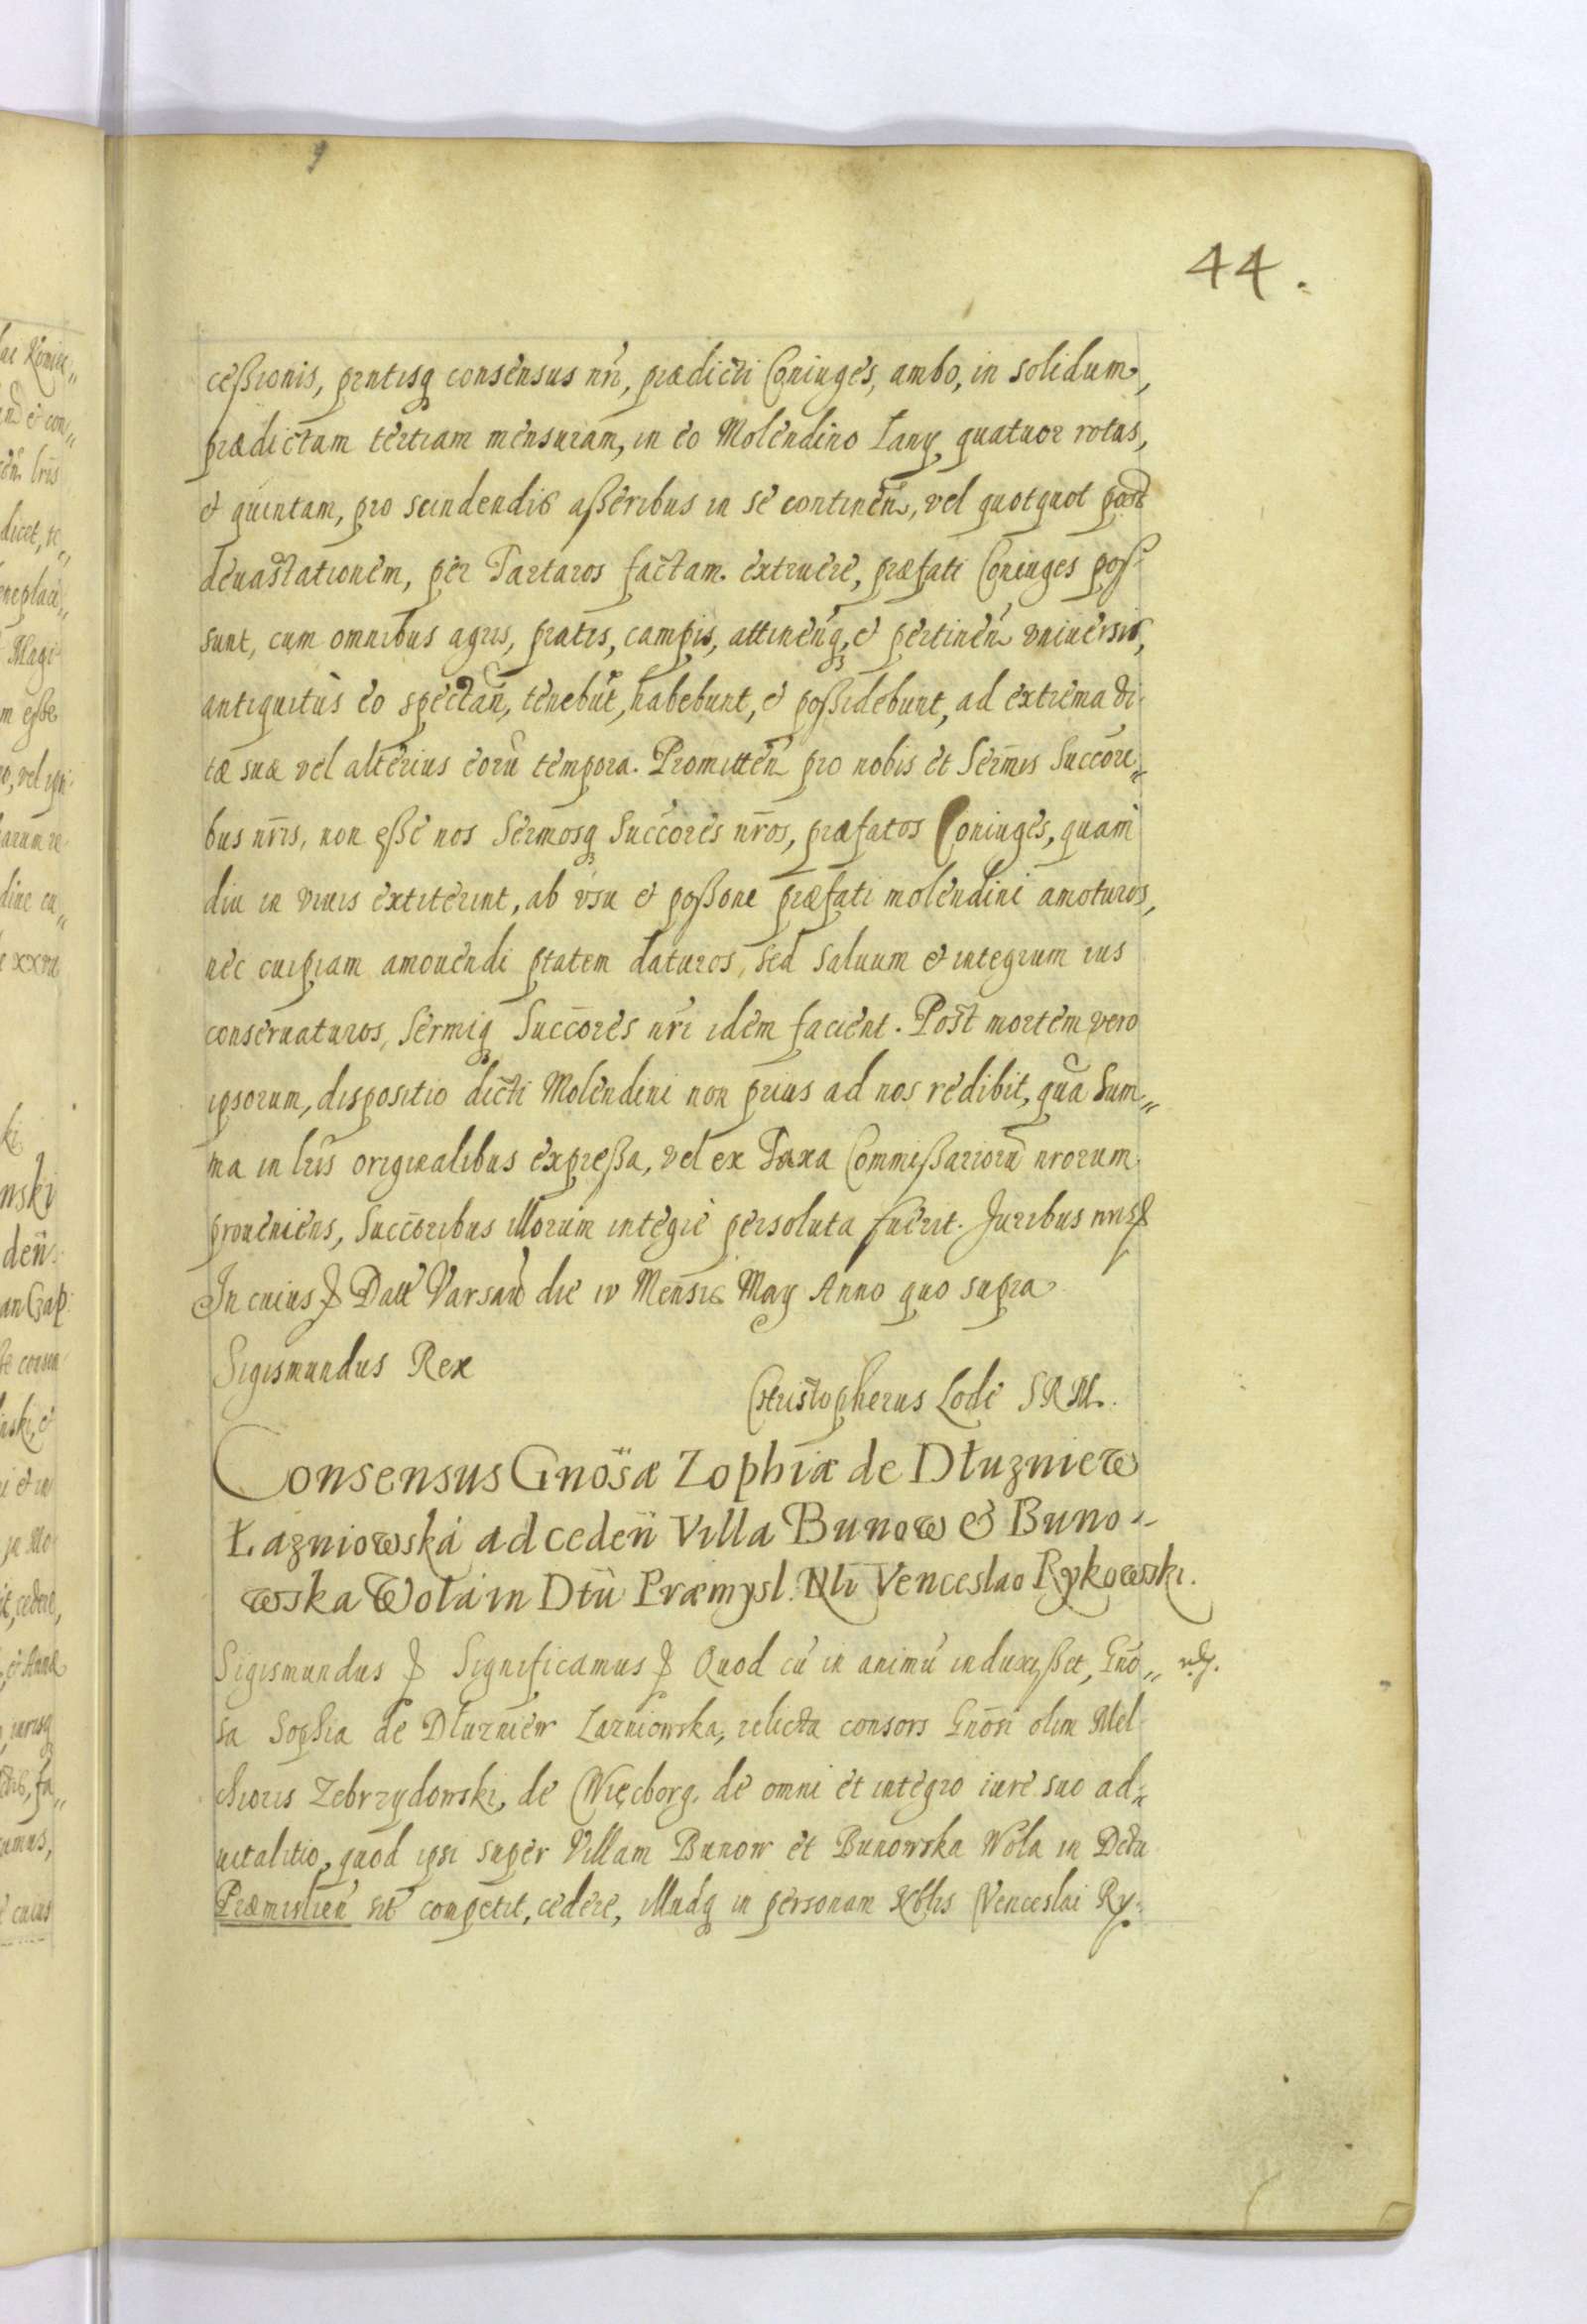 44.
ceßionis, prntisq consensus nri, prædicti Coniuges, ambo, in solidum,
prædictam tertiam mensuram, in eo Molendino Lany quatuor rotas,
et quintam, pro scindendis aßeribus in se continen, vel quotquot post
deuastationem, per Tartaros factam extruere, præfati Coniuges pos-
sunt, cum omnibus agris, pratis, campis, attinenq, et pertinen vniuersis,
antiquitus eo spectan, tenebut, habebunt, et poßidebunt, ad extrema vi-
tæ suæ vel alterius eoru tempora. Promitten pro nobis et Sermis Succori„
bus nris, non eße nos Sermosq Succores nros, præfatos Coniuges, quam
diu in viuis extiterint, ab vsu et poßone præfati molendini amoturos,
nec cuipiam amouendi ptatem daturos, sed saluum et integrum ius
conseruaturos, Sermiq Succores nri idem facient. Post mortem vero
ipsorum, dispositio dicti Molendini non prius ad nos redibit, qua sum„
ma in lris originalibus expreßa, vel ex Taxa Commißarioru nrorum
proueniens, Succoribus illorum integre persoluta fuerit. Juribus nris
In cuius Datt Varsau die iv Mensis May Anno quo supra
Sigismundus Rex
Christopherus Lodi SRM.
Consensus Gnosæ Zophiæ de Dłuzniew
Łazniowska ad ceden Villa Bunow et Buno-
wska Wola in Dtu Præmysl. Nli Venceslao Rykowski.
Sigismundus Significamus Quod cu in animu induxißet, Gno„
sa Sophia de Dłuzniew Lazniowska, relicta consors Gnosi olim Mel-
chioris Zebrzydowski, de Więcborg, de omni et integro iure suo ad„
uitalitio, quod ipsi super Villam Bunow et Bunowska Wola in Dctu
Præmislien sit competit, cedere, illudq in personam Nblis Venceslai Ry-